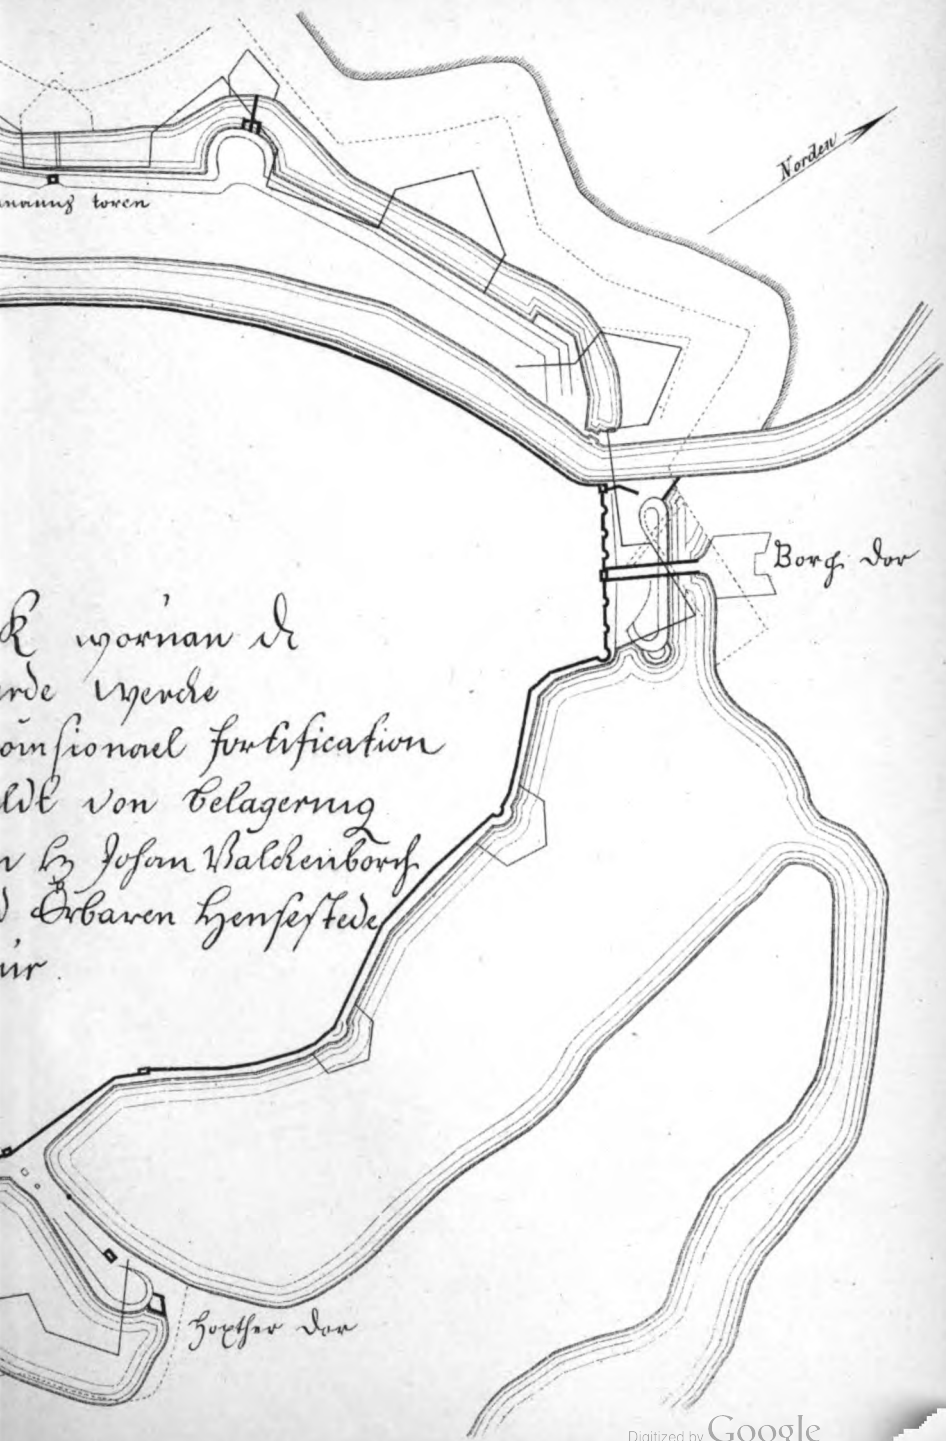 Norden
toren
Borch Dor
K wornan di
erde Wercke
fortification
ldt von belagerung
Johan Valckenborch
Erbaren Hensestede
Hoxther Dor
Digitized by Google